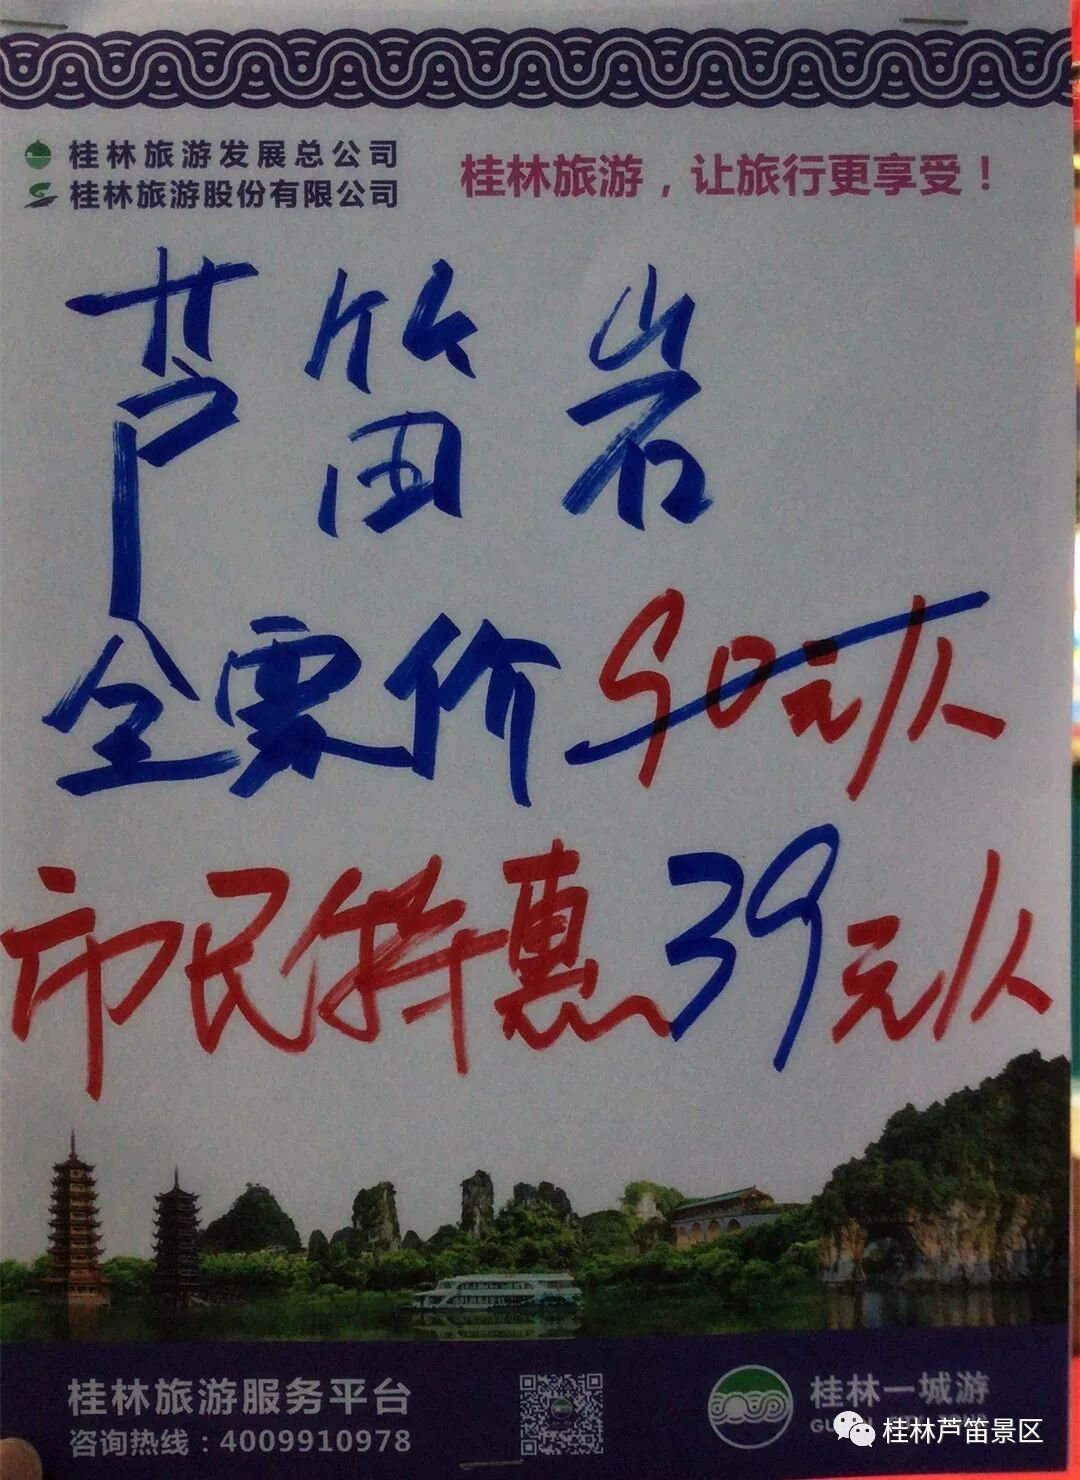 桂林旅游发展总公司
桂林旅游股份有限公司
桂林旅游，让旅行更享受！
芦笛岩
全票价90元/人
市民特惠39元/人
桂林旅游服务平台
咨询热线：4009910978
桂林一城游
桂林芦笛景区